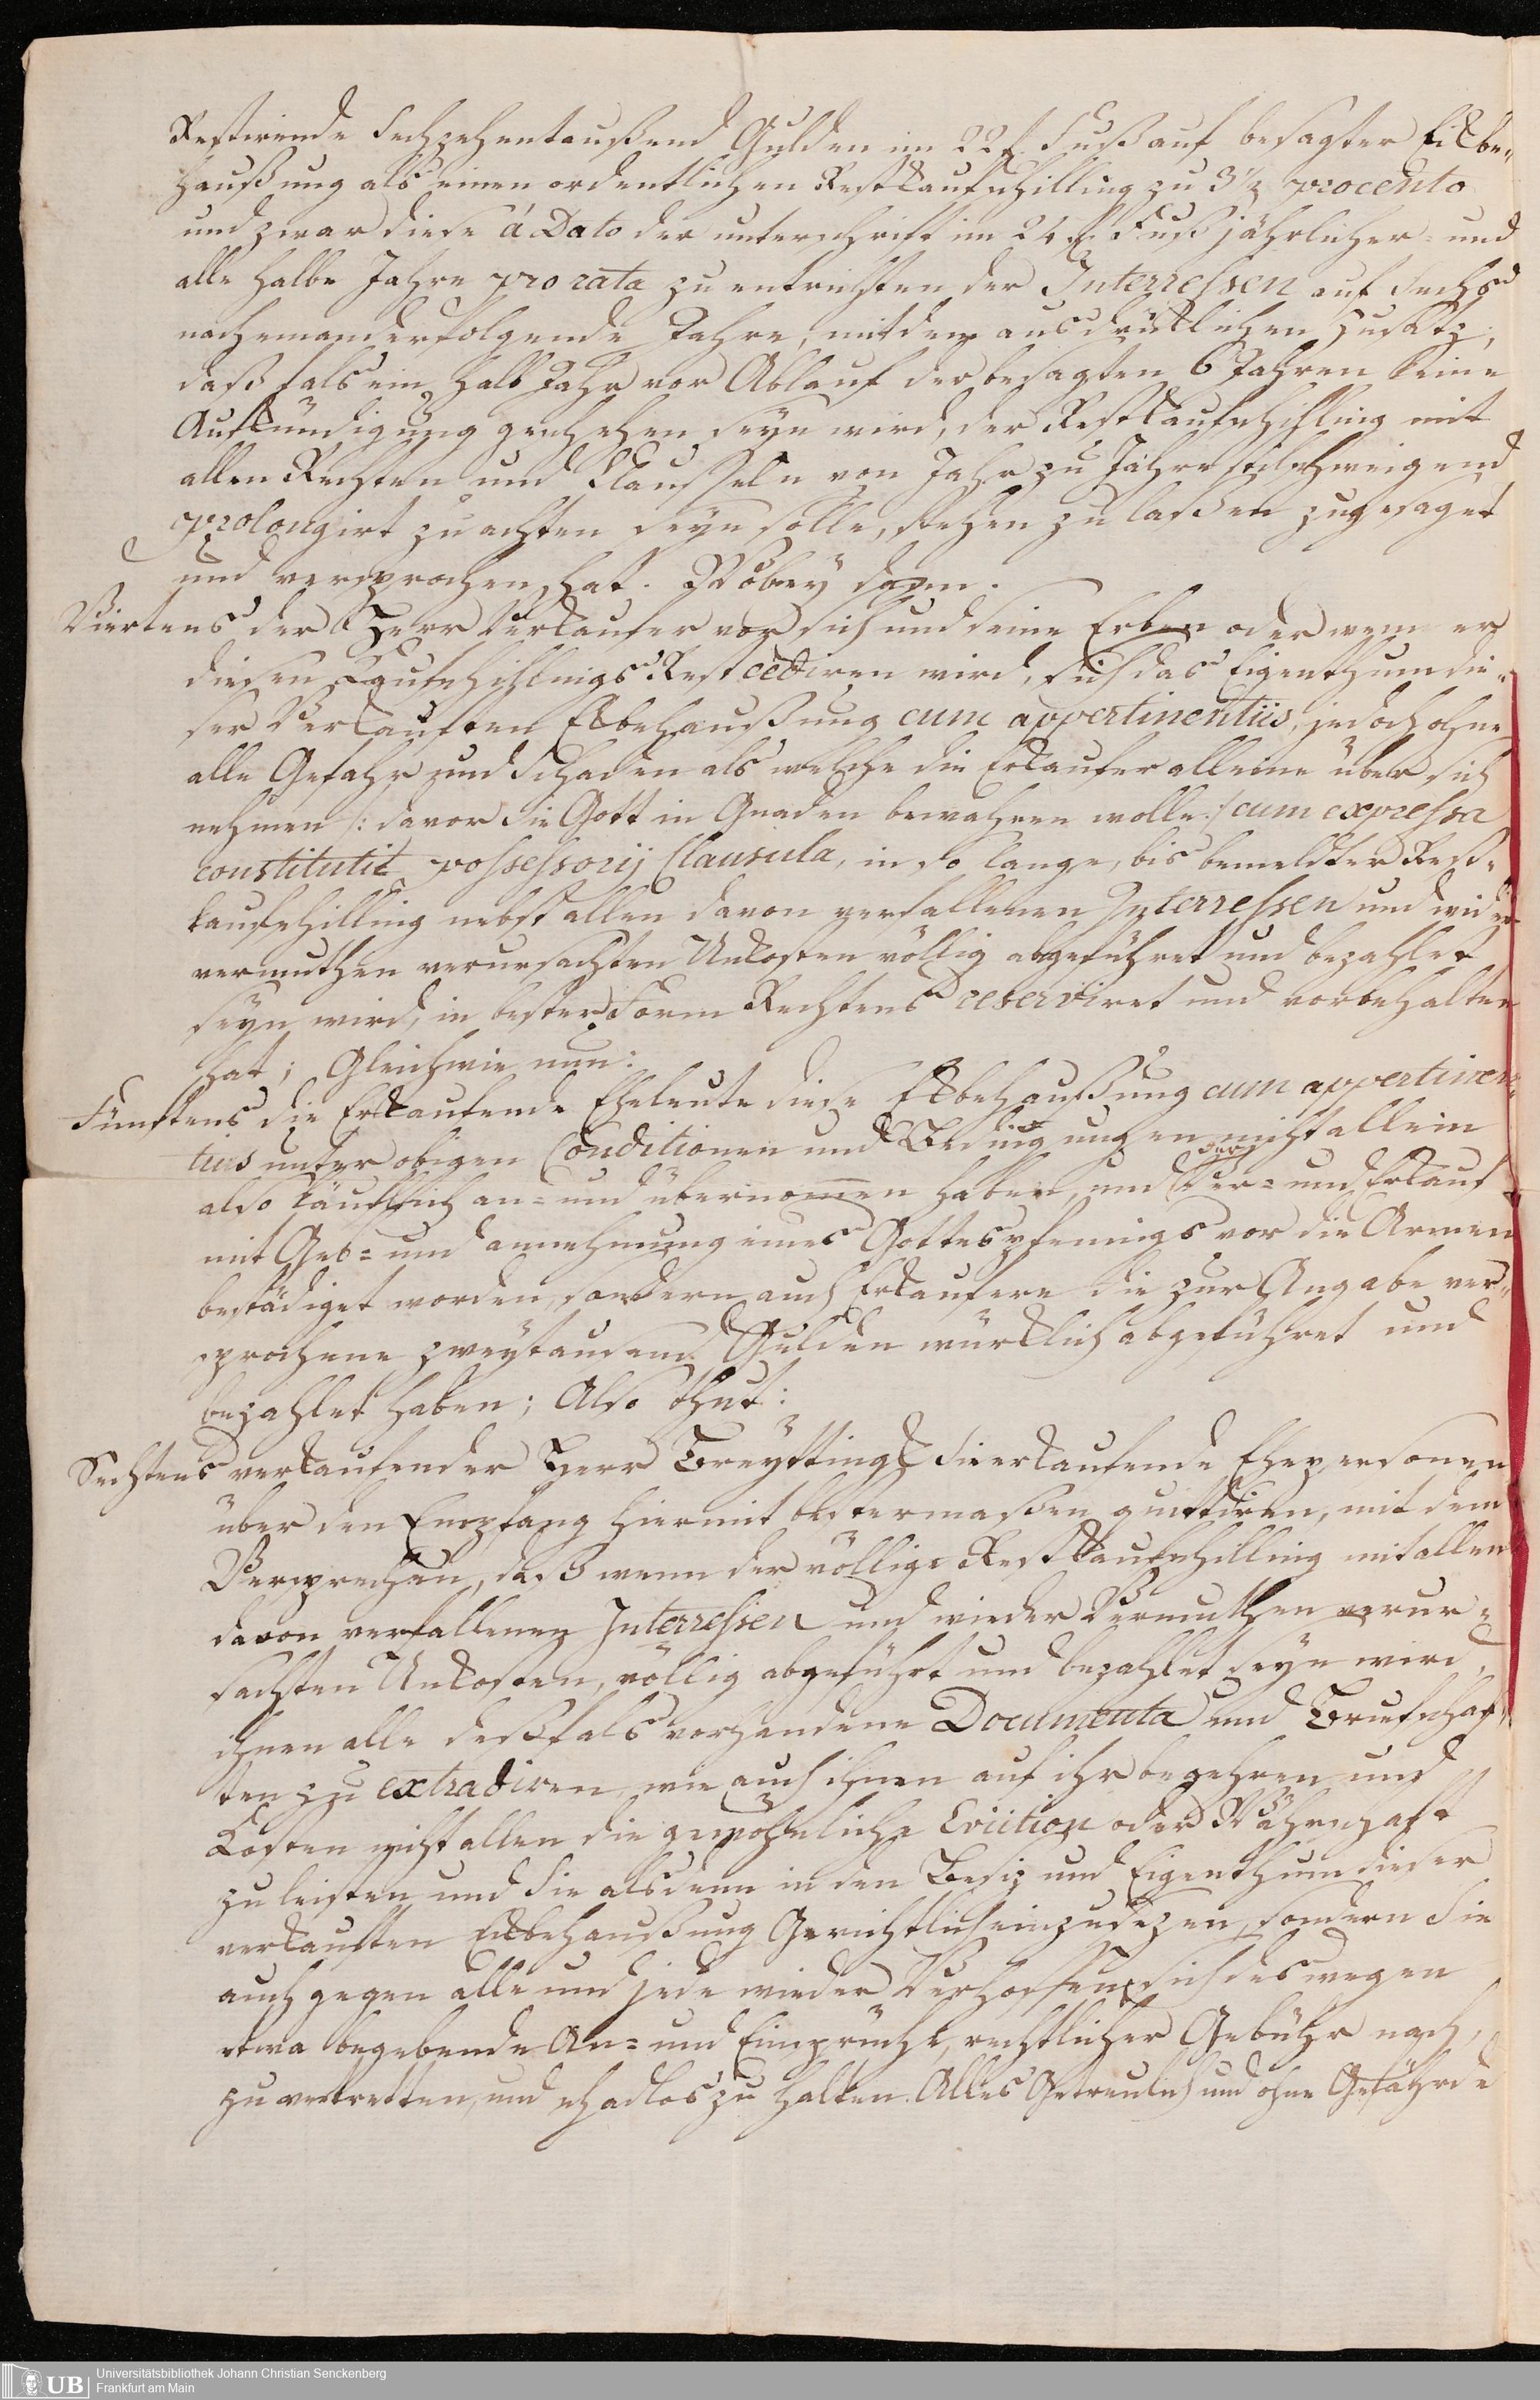 Restirende Sechzehentaußend Gulden im 22 f. Fuß auf besagter Eckbe„
haußung als einen ordentlichen Restkaufschilling zu 3½ procento
und zwar diese á Dato der unterschrift im 24 f. Fuß jährlicher- und
alle halbe Jahre pro rata zu entrichtender Interressen auf sechs
nacheinanderfolgende Jahre, mit dem ausdrücklichen Zusatz,
daß fals ein halb Jahr vor Ablauf der besagten 6 Jahren keine
Aufkündigung geschehen seyn wird, der Restkaufschilling mit
allen Rechten und Clauseln von Jahr zu Jahre stillschweigend
prolongirt zu achten seyn solle, stehen zu laßen zugesaget
und versprochen hat. Wobey dann.
Viertens der Herr Verkaufer vor sich und seine Erben oder wem er
diesen Kaufschillings Rest cediren wird, sich das Eigenthum die„
ser Verkauften Eckbehaußung cum appertinentiis, jedoch ohne
alle Gefahr und Schaden als welche die Erkaufer alleine über sich
nehmen /: davor Sie Gott in Gnaden bewahren wolle :/ cum expressa
constituti possessorij Clausula, in so lange, bis bemeldter Rest„
kaufschilling nebst allen davon verfallenen Interressen und wider
vermuthen verursachten Unkosten völlig abgeführet und bezahlet
seyn wird, in bester Form Rechtens reserviret und vorbehalten
hat; Gleichwie nun:
Fünftens die Erkaufende Eheleute diese Eckbehaußung cum appertinen„
tiis unter obigen Conditionen und Bedingungen nicht allein
also käuflich an- und übernommen haben, und der Ver- und Erkauf
mit Geb- und annehmung eines Gottespfennings vor die Armen
bestädiget worden, sondern auch Erkaufere die zur Angabe ver„
sprochene zweytausend Gulden würcklich abgeführet und
bezahlet haben; Also thut:
Sechstens verkaufender Herr Breytting die erkaufende Ehepersonen
über den Empfang hiermit bestermaßen quittiren, mit dem
Versprechen, daß wenn der völlige Restkaufschilling mit allen
davon verfallenen Interressen und wieder Vermuthen verur„
sachten Unkosten, völlig abgeführt und bezahlet seyn wird,
ihnen alle desfals vorhandene Documenta und Briefschaf„
ten zu extradiren, wie auch ihnen auf ihr begehren und
Kosten nicht allen die gewöhnliche Eviction oder Währschaft
zu leisten und Sie alsdenn in den Besiz und Eigenthum dieser
verkauften Eckbehaußung Gerichtlich einzusezen, sondern Sie
auch gegen alle und jede wieder Verhoffen sich deswegen
etwa begebende An- und Einsprüche, rechtlicher Gebühr nach,
zu vertretten, und schadlos zu halten. Alles Getreulich und ohne Gefährde
Universitätsbibliothek Johann Christian Senckenberg
Frankfurt am Main